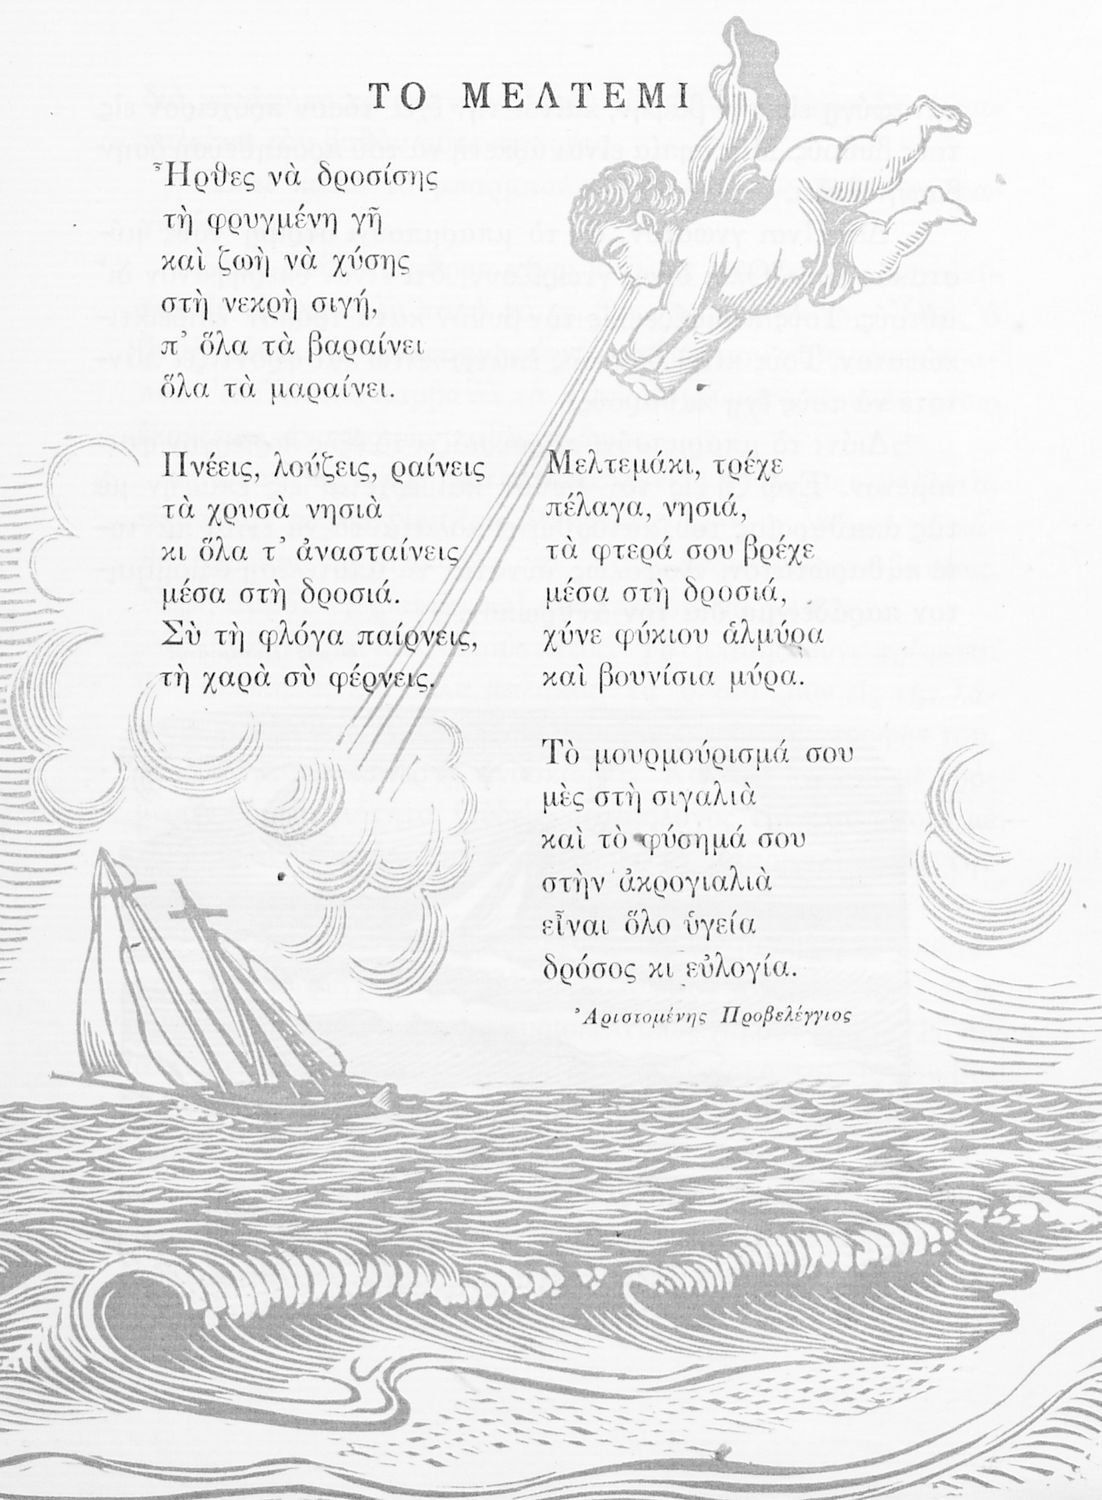 ΤΟ ΜΕΛΤΕΜΙ
Ἦρθες νὰ δροσίσης
τὴ φρυγμένη γῆ
καὶ ζωὴ νὰ χύσης
στὴ νεκρὴ σιγή,
π' ὅλα τὰ βαραίνει
ὅλα τὰ μαραίνει.
Πνέεις, λούζεις, ραίνεις
τὰ χρυσὰ νησιὰ
κι ὅλα τ' ἀνασταίνεις
μέσα στὴ δροσιά.
Σὺ τὴ φλόγα παίρνεις,
τὴ χαρὰ σὺ φέρνεις.
Μελτεμάκι, τρέχε
πέλαγα, νησιά,
τὰ φτερά σου βρέχε
μέσα στὴ δροσιά,
χύνε φύκιου ἁλμύρα
καὶ βουνίσια μύρα.
Τὸ μουρμούρισμά σου
μὲς στὴ σιγαλιὰ
καὶ τὸ φύσημά σου
στὴν ἀκρογιαλιὰ
εἶναι ὅλο ὑγεία
δρόσος κι εὐλογία.
Ἀριστομένης Προβελέγγιος